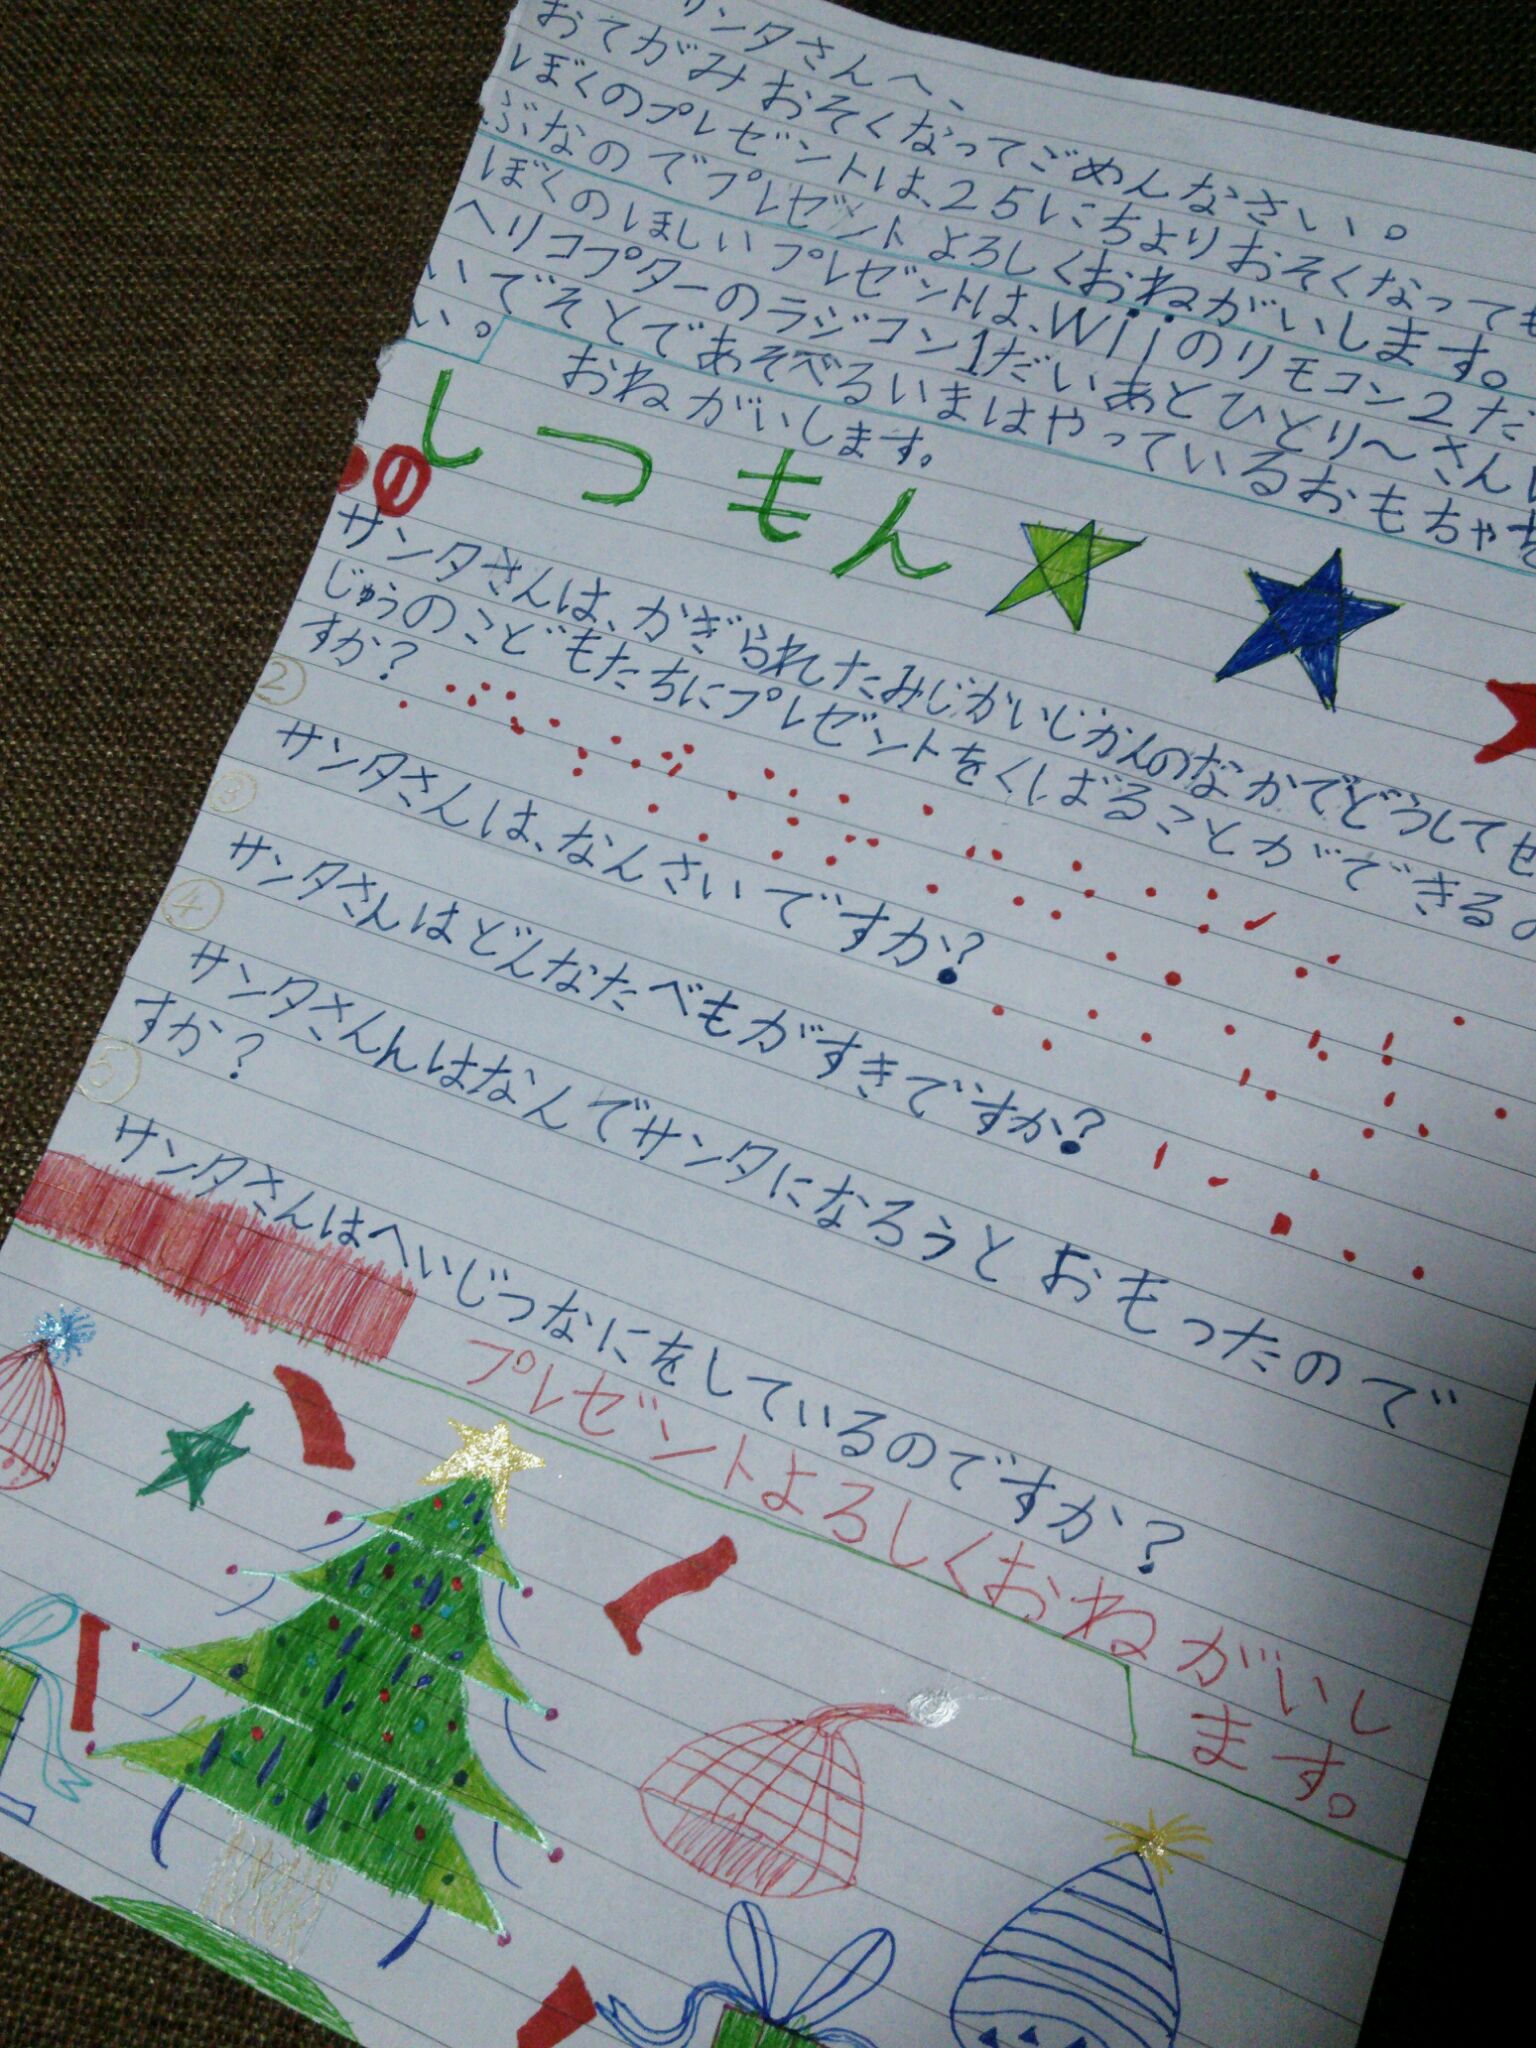 サンタさんへ、
おてがみおそくなってごめんなさい。
ぼくのプレゼントは、25にちよりおそくなっても
ぶなのでプレゼントよろしくおねがいします。
ぼくのほしいプレゼントは、Wiiのリモコン2だ
ヘリコプターのラジコン1だいあとひとり〜さんに
いでそとであそべるいまはやっているおもちゃを
い。
おねがいします。
しつもん
サンタさんは、かぎられたみじかいじかんのなかでどうしてせ
じゅうのこどもたちにプレゼントをくばることができるの
すか?
②
サンタさんは、なんさいですか?
③
サンタさんはどんなたべもがすきですか?
④
サンタさんんはなんでサンタになろうとおもったので
すか?
⑤
サンタさんはへいじつなにをしているのですか?
プレゼントよろしくおねがいし
ます。